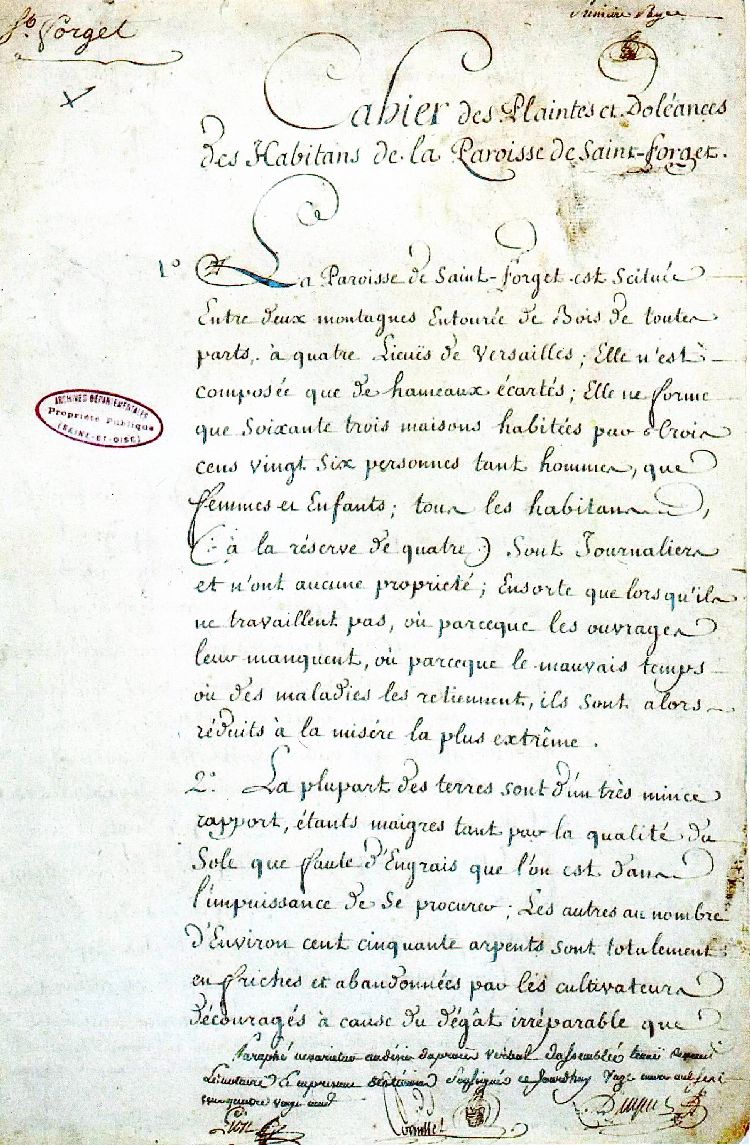 St. Forget
Première Page
Cahier des Plaintes et Doléances
des Habitans de la Paroisse de Saint-forget.
1º La Paroisse de Saint-forget est Scituée
Entre deux montagnes Entourée de Bois de toutes
parts, à quatre Lieuës de Versailles; Elle n'est
composée que de hameaux écartés; Elle ne forme
que Soixante trois maisons habitées par trois
cens vingt Six personnes tant hommes, que
femmes et Enfants; tous les habitans,
(à la réserve de quatre) Sont Journaliers
et n'ont aucune propriété; Ensorte que lorsqu'ils
ne travaillent pas, où parceque les ouvrages
leur manquent, où parceque le mauvais temps
où des maladies les retiennent, ils sont alors
réduits à la misére la plus extrême.
2º. La plupart des terres sont d'un très mince
rapport, étants maigres tant par la qualité du
Sole que faute d'Engrais que l'on est dans
l'impuissance de Se procurer; Les autres au nombre
d'Environ cent cinquante arpents sont totalement
en friches et abandonnées par les cultivateurs
découragés à cause du dégât irréparable que
Paraphé ne varietur au désir du procès verbal d'assemblée
ARCHIVES DÉPARTEMENTALES
Propriété Publique
(SEINE-ET-OISE)